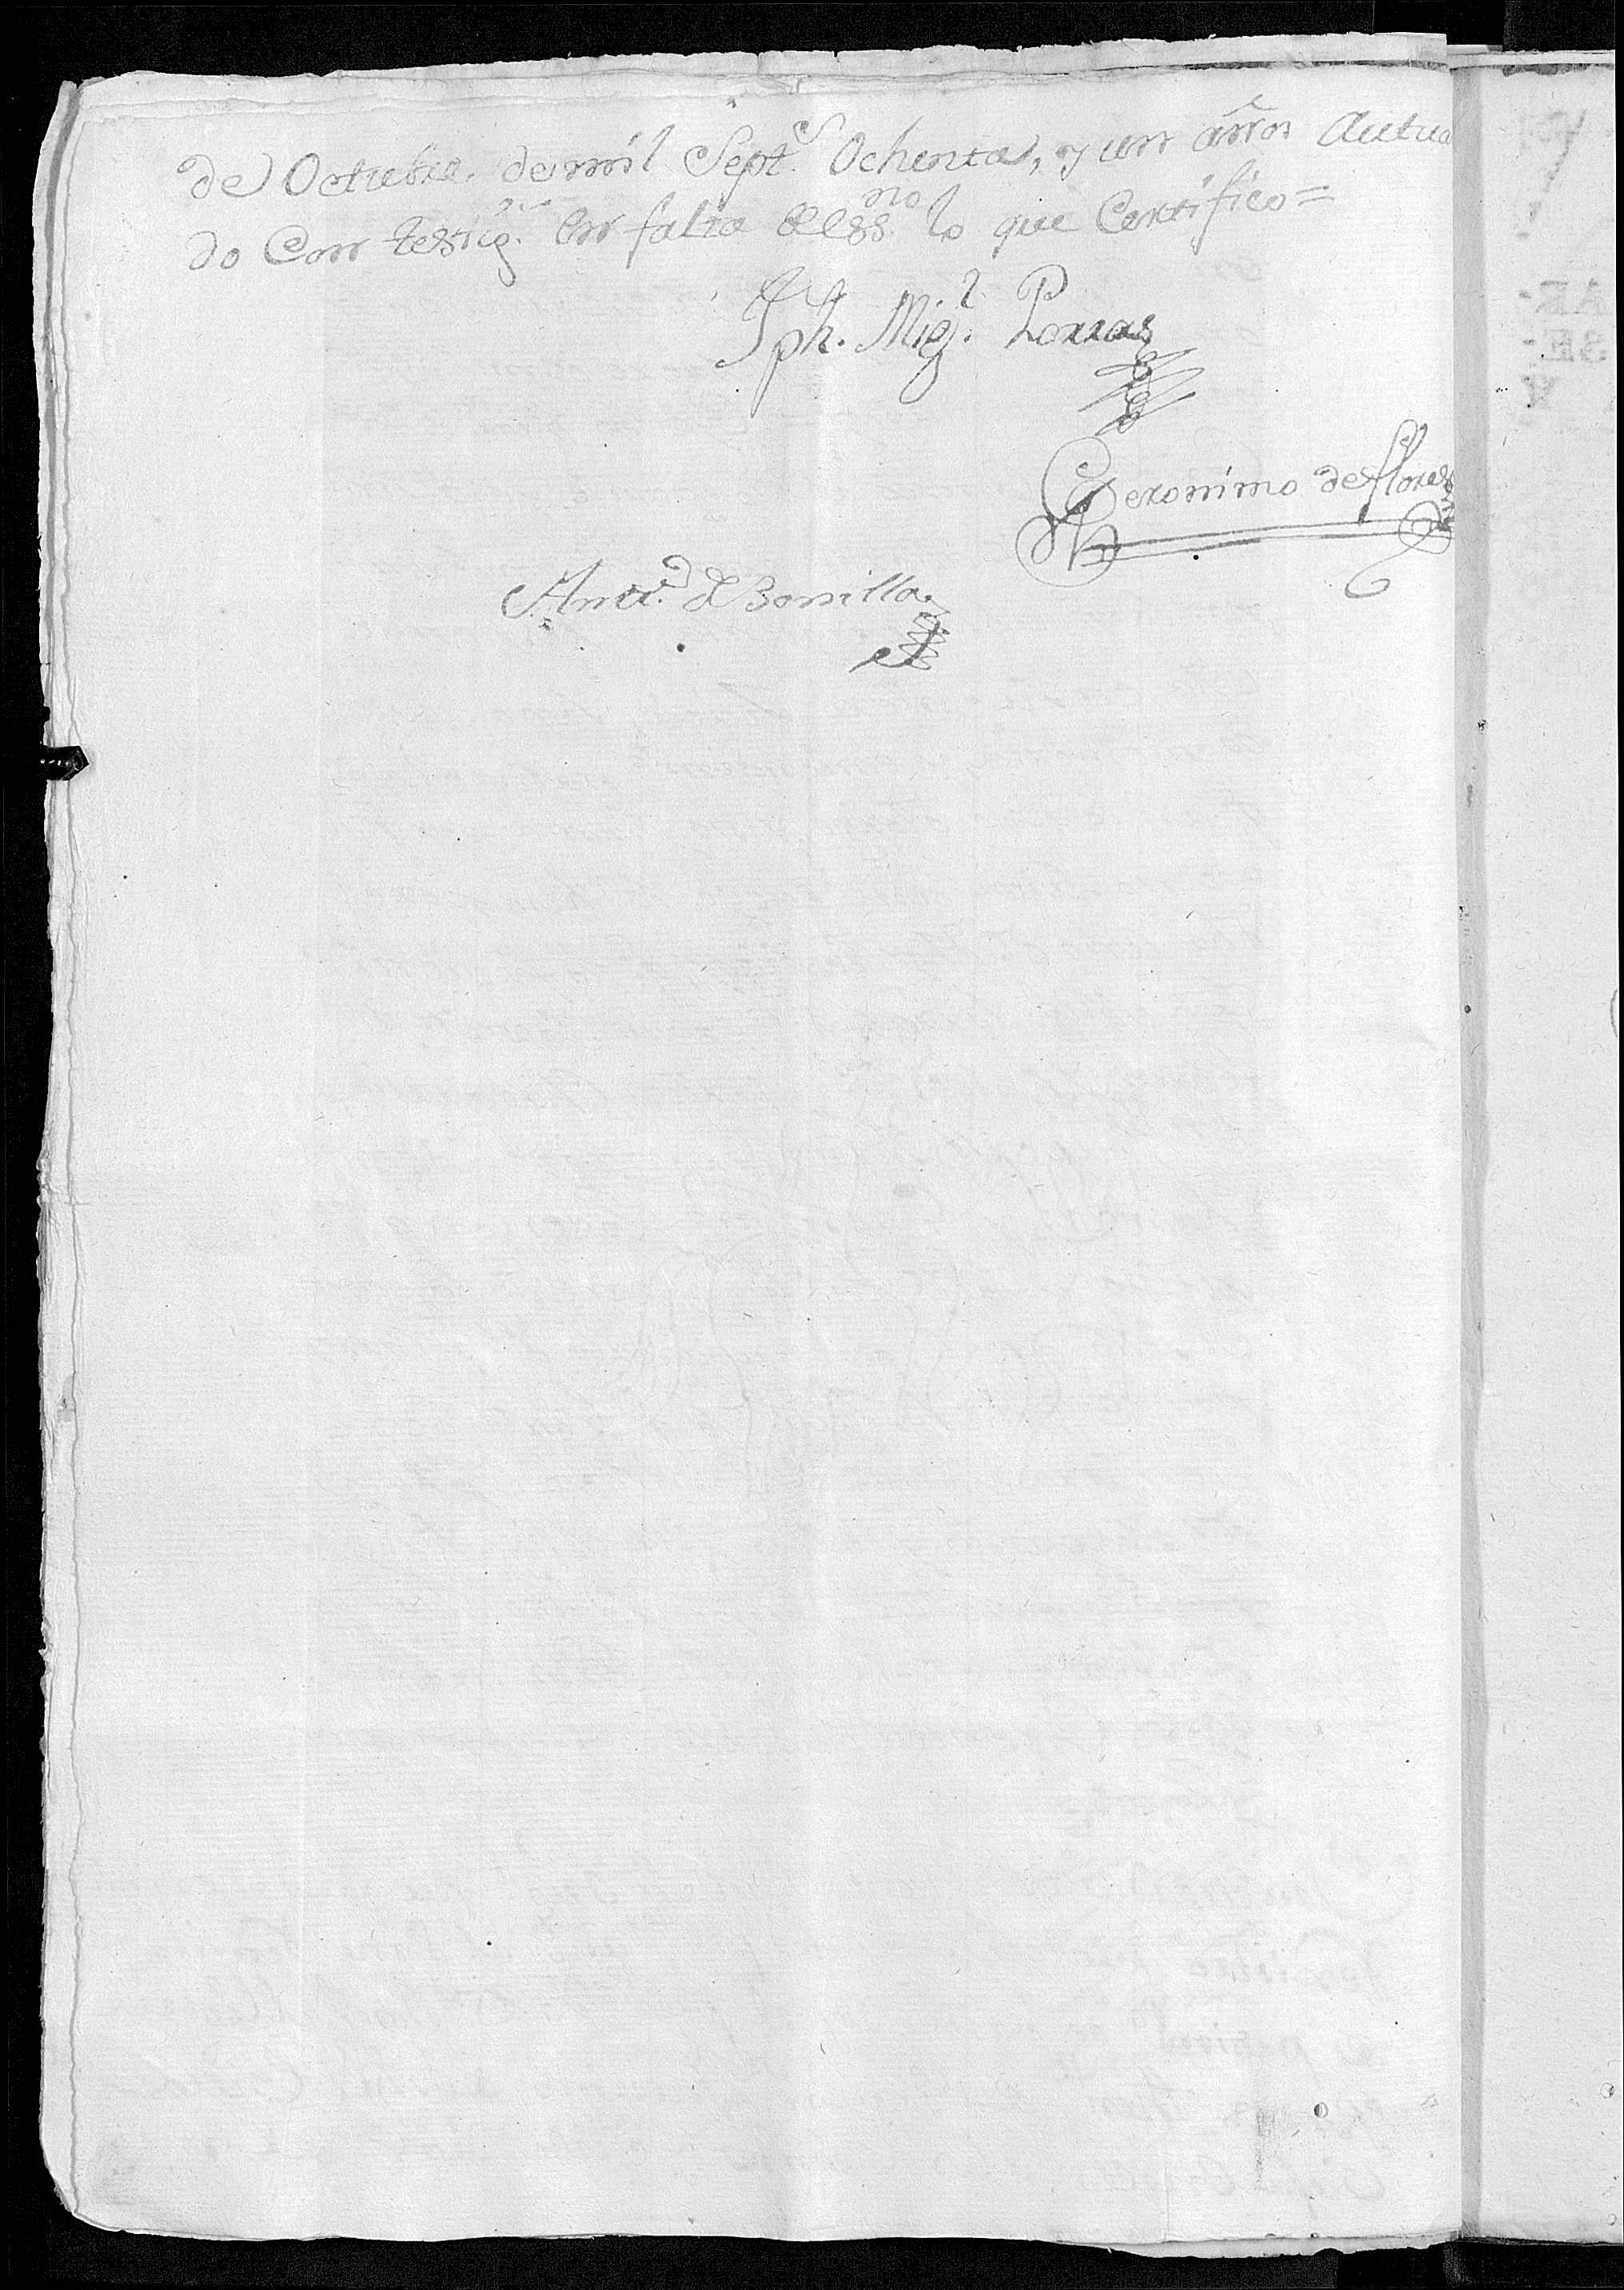 de Octubre, de mil Sept.s Ochenta, y un años Actua
do Con testig.s en falta de Ess.no lo que Certifico =
Jph. Mig.l Porras
Geronimo de flores
Anto. de Bonilla